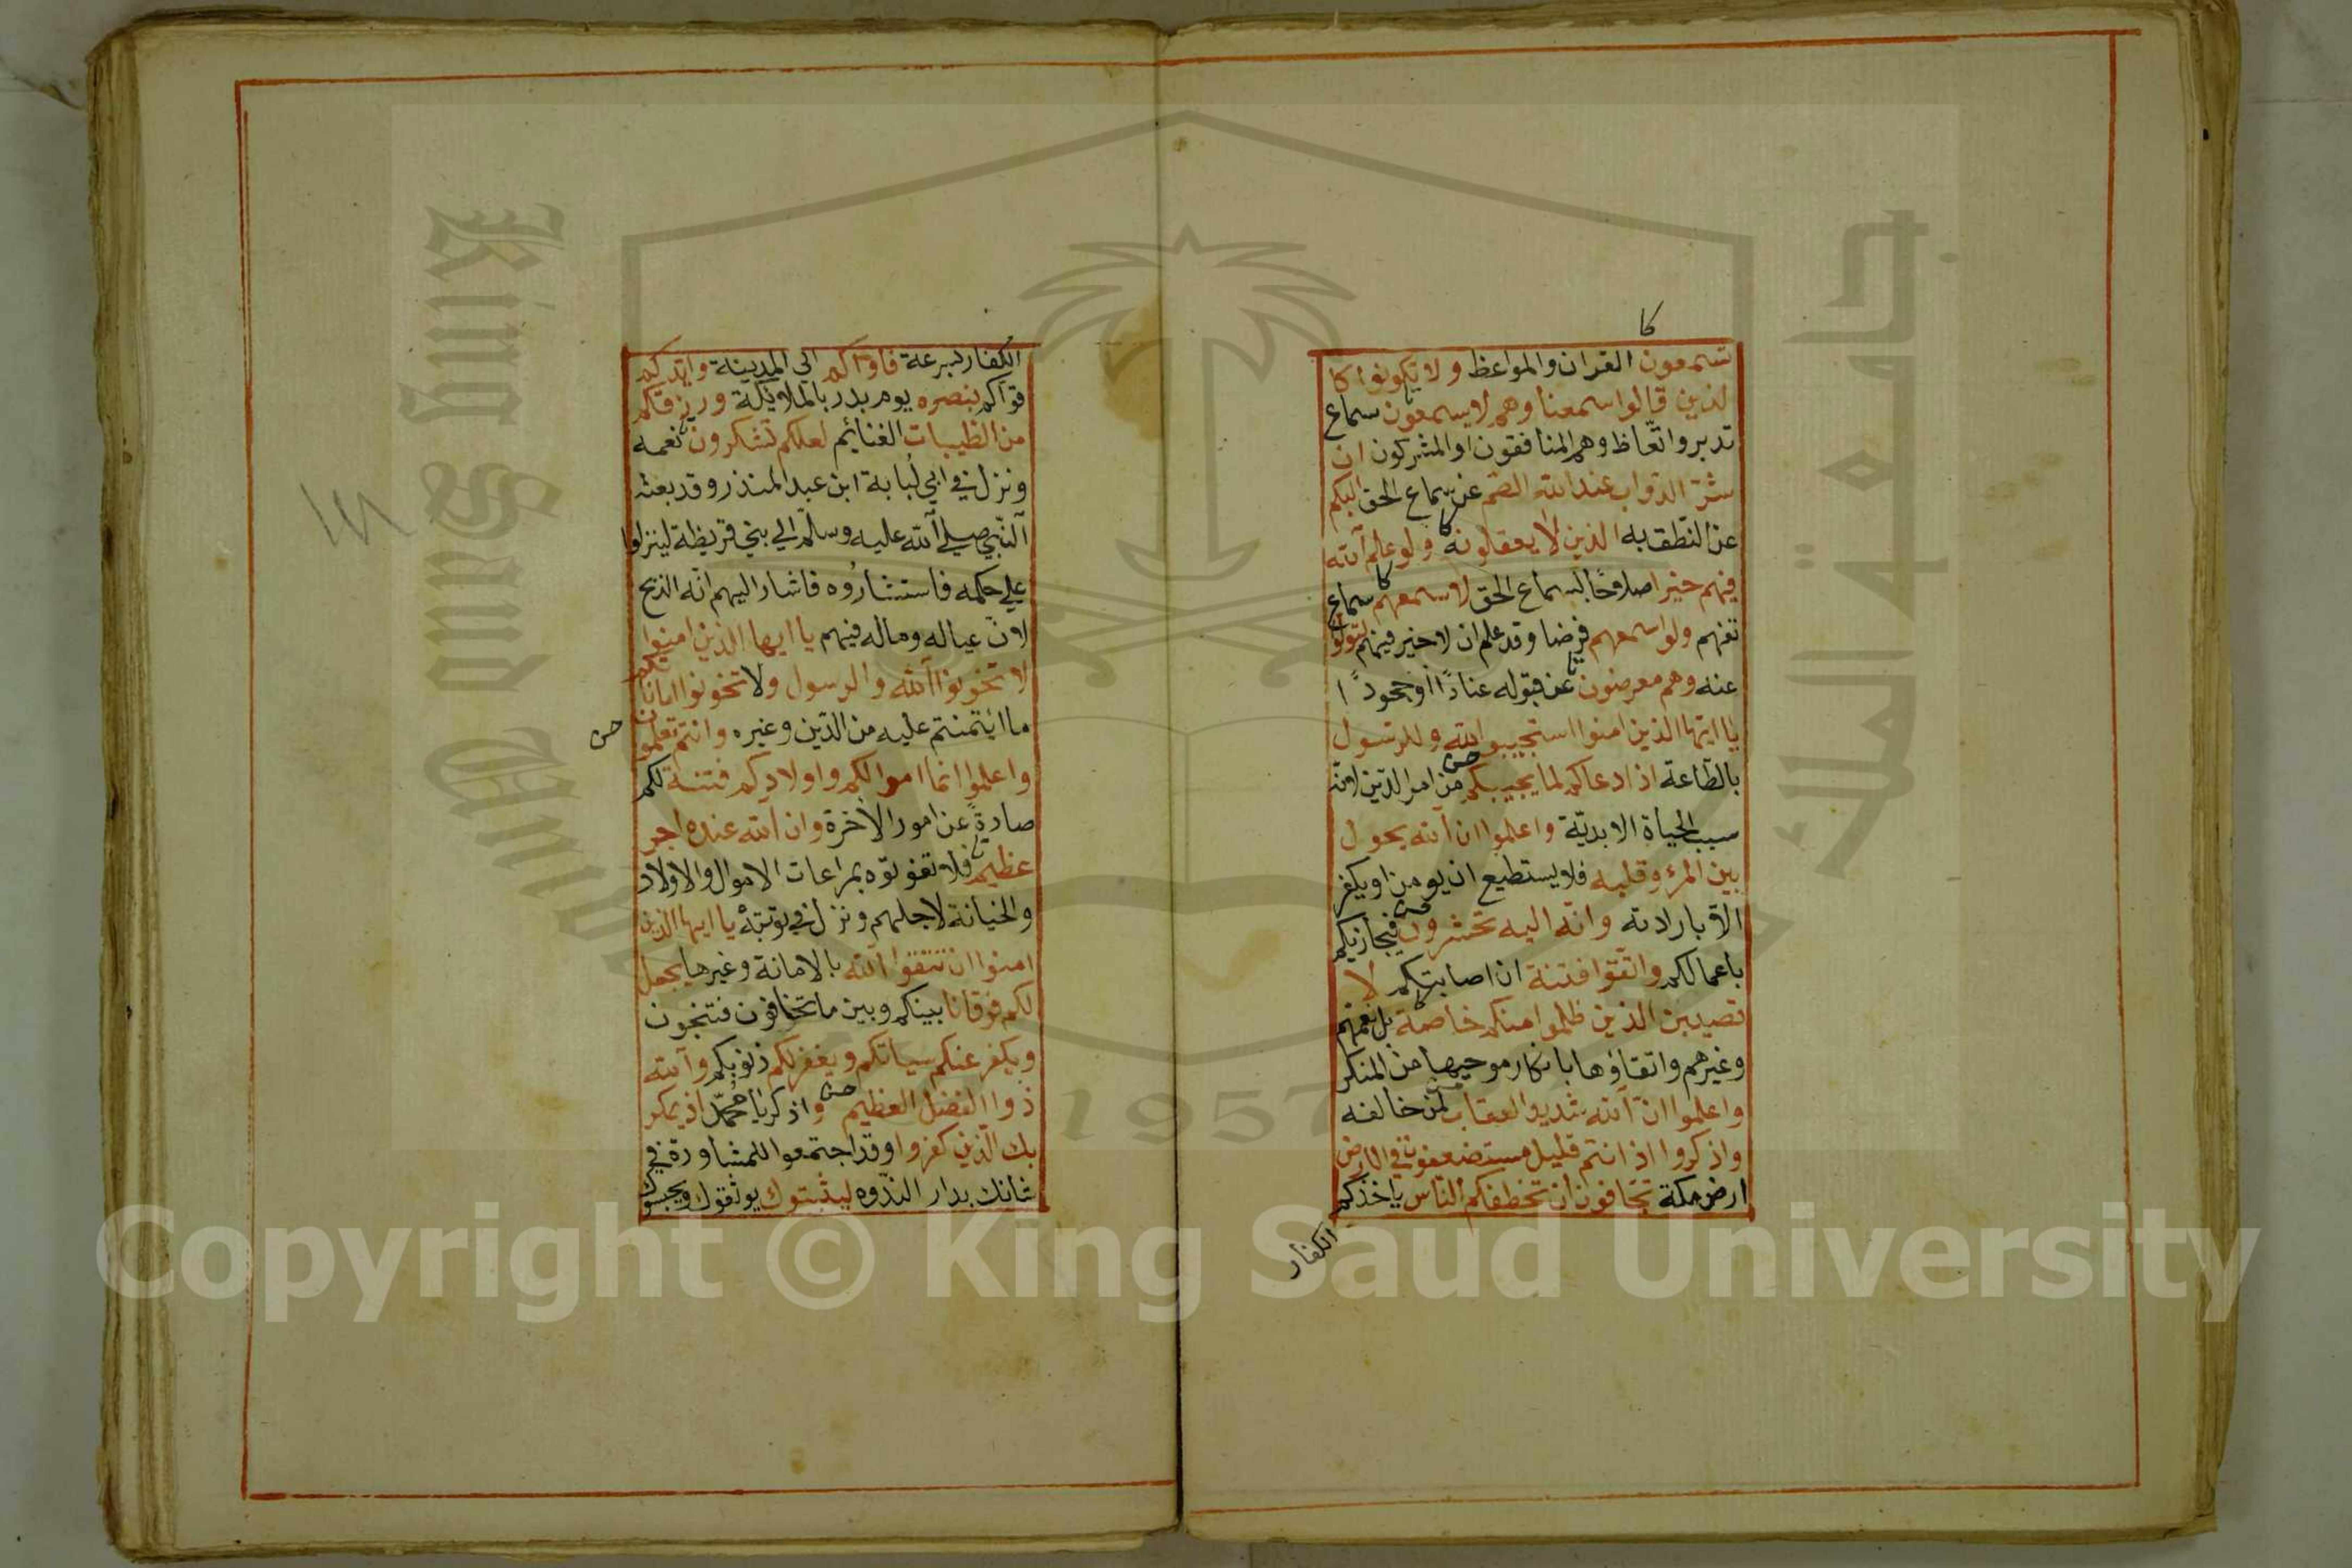 كا
تسمعون القران والمواعظ ولا تكونوا كا
لذين قالوا سمعنا وهم لا يسمعون سماع
تدبر واتعاظ وهم المنافقون او المشركون ان
شر الدواب عند الله الصم عن سماع الحق البكم
عن النطق به الذين لا يعقلونه ولو علم الله
فيهم خيرا صلاحا لسماع الحق لاسمعهم سماع
تفهم ولو اسمعهم فرضا وقد علم ان لا خير فيهم لتولوا
عنه وهم معرضون عن قبوله عنادا او جحودا
يا ايها الذين امنوا استجيبوا لله وللرسول
بالطاعة اذا دعاكم لما يحييكم من امر الدين لانه
سبب الحياة الابدية واعلموا ان الله يحول
بين المرء وقلبه فلا يستطيع ان يومن او يكفر
الا بارادته وانه اليه تحشرون فيجازيكم
باعمالكم واتقوا فتنة ان اصابتكم لا
تصيبن الذين ظلموا منكم خاصة بل تعمهم
وغيرهم واتقاؤها بانكار موجبها من المنكر
واعلموا ان الله شديد العقاب لمن خالفه
واذكروا اذ انتم قليل مستضعفون في الارض
ارض مكة تخافون ان تخطفكم الناس ياخذكم
الكفار
الكفار بسرعة فاواكم الى المدينة وايدكم
قواكم بنصره يوم بدر بالملائكة ورزقكم
من الطيبات الغنائم لعلكم تشكرون نعمه
ونزل في ابي لبابة ابن عبد المنذر وقد بعثه
النبي صلى الله عليه وسلم الي بني قريظة لينزلوا
على حكمه فاستشاروه فاشار اليهم انه الذبح
لان عياله وماله فيهم يا ايها الذين امنوا
لا تخونوا الله والرسول ولا تخونوا اماناتكم
ما ائتمنتم عليه من الدين وغيره وانتم تعلمون
واعلموا انما اموالكم واولادكم فتنة لكم
صادة عن امور الاخرة وان الله عنده اجر
عظيم فلا تفوتوه بمراعات الاموال والاولاد
والخيانة لاجلهم ونزل في توبته يا ايها الذين
امنوا ان تتقوا الله بالامانة وغيرها يجعل
لكم فرقانا بينكم وبين ما تخافون فتنجون
ويكفر عنكم سياتكم ويغفر لكم ذنوبكم والله
ذوا الفضل العظيم واذكر يا محمد اذ يمكر
بك الذين كفروا وقد اجتمعوا للمشاورة في
شانك بدار الندوه ليثبتوك يوثقوك ويحبسوك
King Saud University
جامعة الملك سعود
1957
Copyright © King Saud University